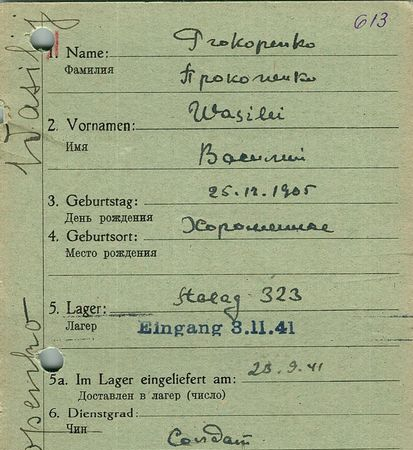 613
1. Name: Prokopenko
Фамилия Прокопенко
2. Vornamen: Wasilii
Имя
Василий
3. Geburtstag: 25.12.1905
День рождения
4. Geburtsort:
Место рождения
5. Lager: Stalag 323
Лагер Eingang 3.11.41
5a. Im Lager eingeliefert am: 28.9.41
Доставлен в лагер (число)
6. Dienstgrad:
Чин Солдат
Wasilij
openko